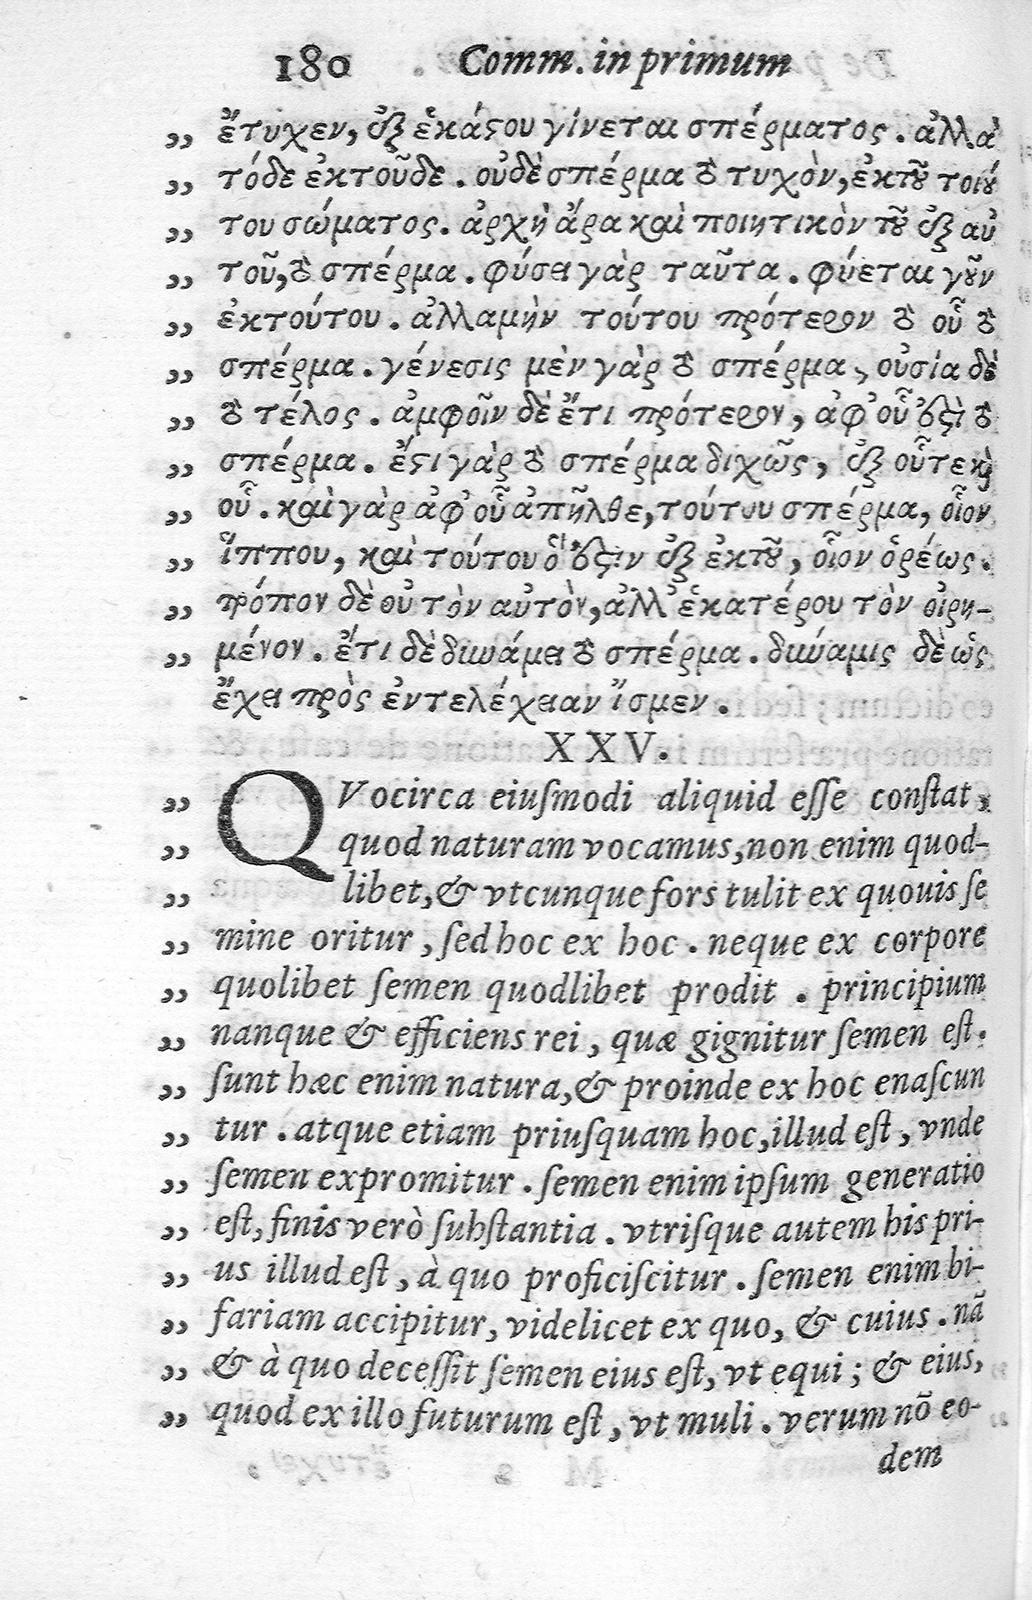 180 Comm. in primum
„ ἔτυχεν, ἐξ ἑκάστου γίνεται σπέρματος. ἀλλὰ
„ τόδε ἐκτοῦδε. οὐδὲ σπέρμα τὸ τυχὸν, ἐκ τοῦ τοιού
„ του σώματος. ἀρχὴ ἄρα καὶ ποιητικὸν τοῦ ἐξ αὐ
„ τοῦ, τὸ σπέρμα. φύσει γὰρ ταῦτα. φύεται γοῦν
„ ἐκτούτου. ἀλλαμὴν τούτου πρότερον τὸ οὗ τὸ
„ σπέρμα. γένεσις μὲν γὰρ τὸ σπέρμα, οὐσία δὲ
„ τὸ τέλος. ἀμφοῖν δὲ ἔτι πρότερον, ἀφ' οὗ ἐστὶ τὸ
„ σπέρμα. ἔστι γὰρ τὸ σπέρμα διχῶς, ἐξ οὗτε καὶ
„ οὗ. καὶ γὰρ ἀφ' οὗ ἀπῆλθε, τούτου σπέρμα, οἷον
„ ἵππου, καὶ τούτου ὅ ἐστιν ἐξ ἐκτοῦ, οἷον ὀρέως.
„ τρόπον δὲ οὐ τὸν αὐτὸν, ἀλλ' ἑκατέρου τὸν εἰρη-
„ μένον. ἔτι δὲ δυνάμει τὸ σπέρμα. δύναμις δὲ ὡς
ἔχει πρὸς ἐντελέχειαν ἴσμεν.
XXV.
„ QVocirca eiuſmodi aliquid eſſe conſtat,
„ quod naturam vocamus, non enim quod-
„ libet, & vtcunque fors tulit ex quouis ſe
„ mine oritur, ſed hoc ex hoc. neque ex corpore
„ quolibet ſemen quodlibet prodit. principium
„ nanque & efficiens rei, quæ gignitur ſemen eſt.
„ ſunt hæc enim natura, & proinde ex hoc enaſcun
„ tur. atque etiam priuſquam hoc, illud eſt, vnde
„ ſemen expromitur. ſemen enim ipſum generatio
„ eſt, finis verò ſubſtantia. vtriſque autem his pri-
„ us illud eſt, à quo proficiſcitur. ſemen enim bi-
„ fariam accipitur, videlicet ex quo, & cuius. nã
„ & à quo deceſſit ſemen eius eſt, vt equi; & eius,
„ quod ex illo futurum eſt, vt muli. verum nõ eo-
dem